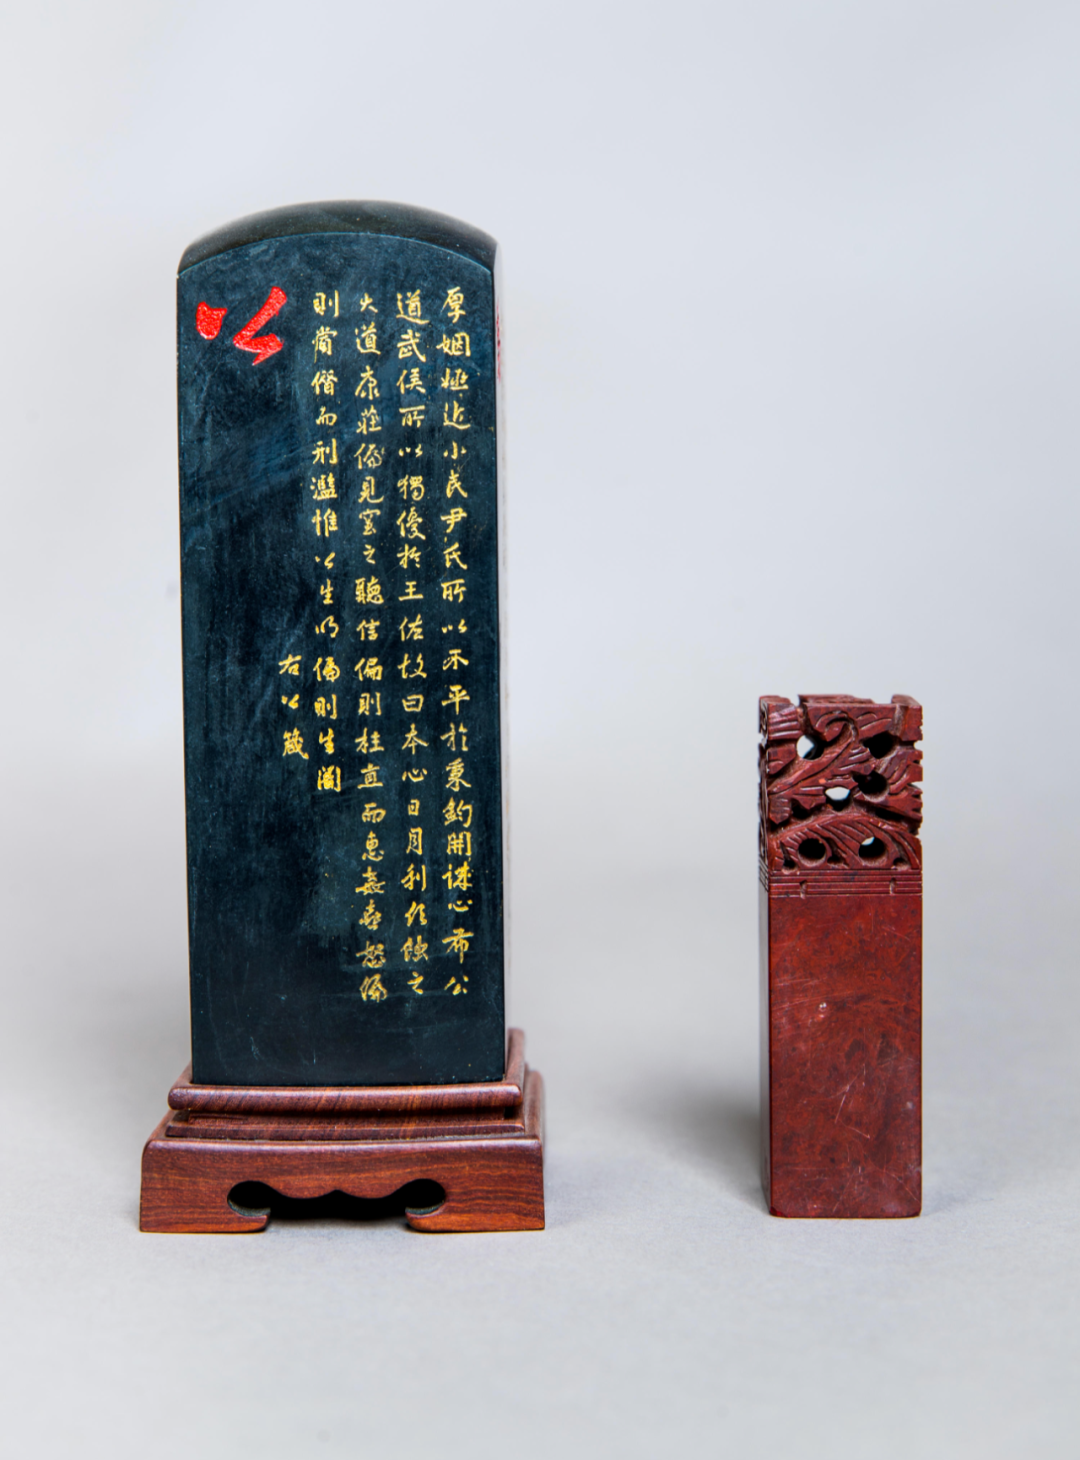 厚姻婭近小民尹氏所以不平於秉鈞開誠心布公
道武侯所以獨優於王佐故曰本心日月利欲蝕之
大道康莊偏見窒之聽信偏則枉直而惠姦喜怒偏
則賞僭而刑濫惟公生明偏則生闇
右公箴
公